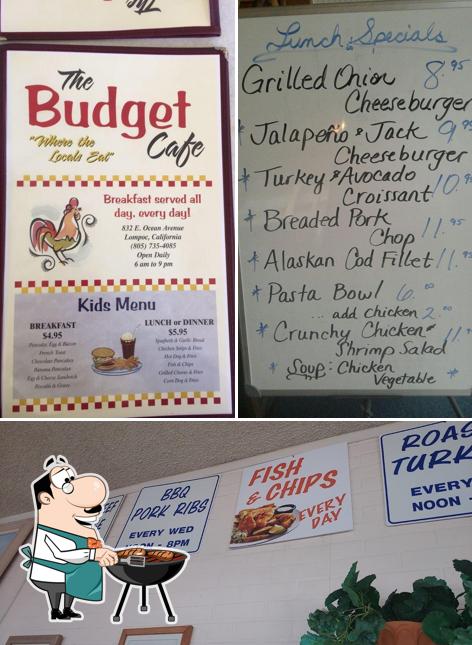 The
The
Budget
Cafe
"Where the
Locals Eat"
Breakfast served all
day, every day!
832 E. Ocean Avenue
Lompoc, California
(805) 735-4085
Open Daily
6 am to 9 pm
Kids Menu
BREAKFAST
$4.95
Pancake, Egg & Bacon
French Toast
Chocolate Pancakes
Banana Pancakes
Egg & Cheese Sandwich
Biscuits & Gravy
LUNCH or DINNER
$5.95
Spaghetti & Garlic Bread
Chicken Strips & Fries
Hot Dog & Fries
Fish & Chips
Grilled Cheese & Fries
Corn Dog & Fries
Lunch Specials
Grilled Onion 8.95
Cheeseburger
* Jalapeño & Jack
Cheeseburger
* Turkey & Avocado
Croissant
* Breaded Pork 11.95
Chop
* Alaskan Cod Fillet
* Pasta Bowl 6.
... add chicken 2.00
* Crunchy Chicken
Shrimp Salad
* Soup: Chicken
Vegetable *
BBQ
PORK RIBS
EVERY WED
NOON - 8PM
FISH
& CHIPS
EVERY
DAY
ROAS
TURK
EVERY
NOON